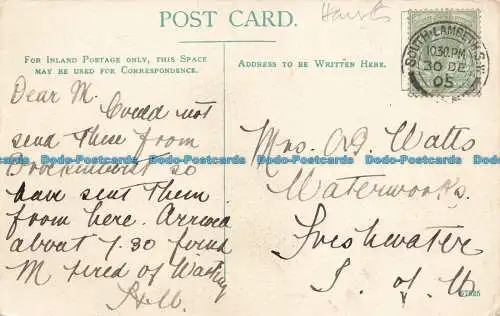 POST CARD.
Hants
FOR INLAND POSTAGE ONLY, THIS SPACE
MAY BE USED FOR CORRESPONDENCE.
ADDRESS TO BE WRITTEN HERE.
SOUTH-LAMBETH S.W.
10.30 PM
30 DE
05
Dear M.
Could not
send these from
Brockenhurst so
have sent them
from here. Arrived
about 7.30 found
M tired of Waiting
Mrs. Watts
Waterworks.
Freshwater
I. of W
Dodo-Postcards Dodo-Postcards Dodo-Postcards Dodo-Postcards Dodo-Postcards